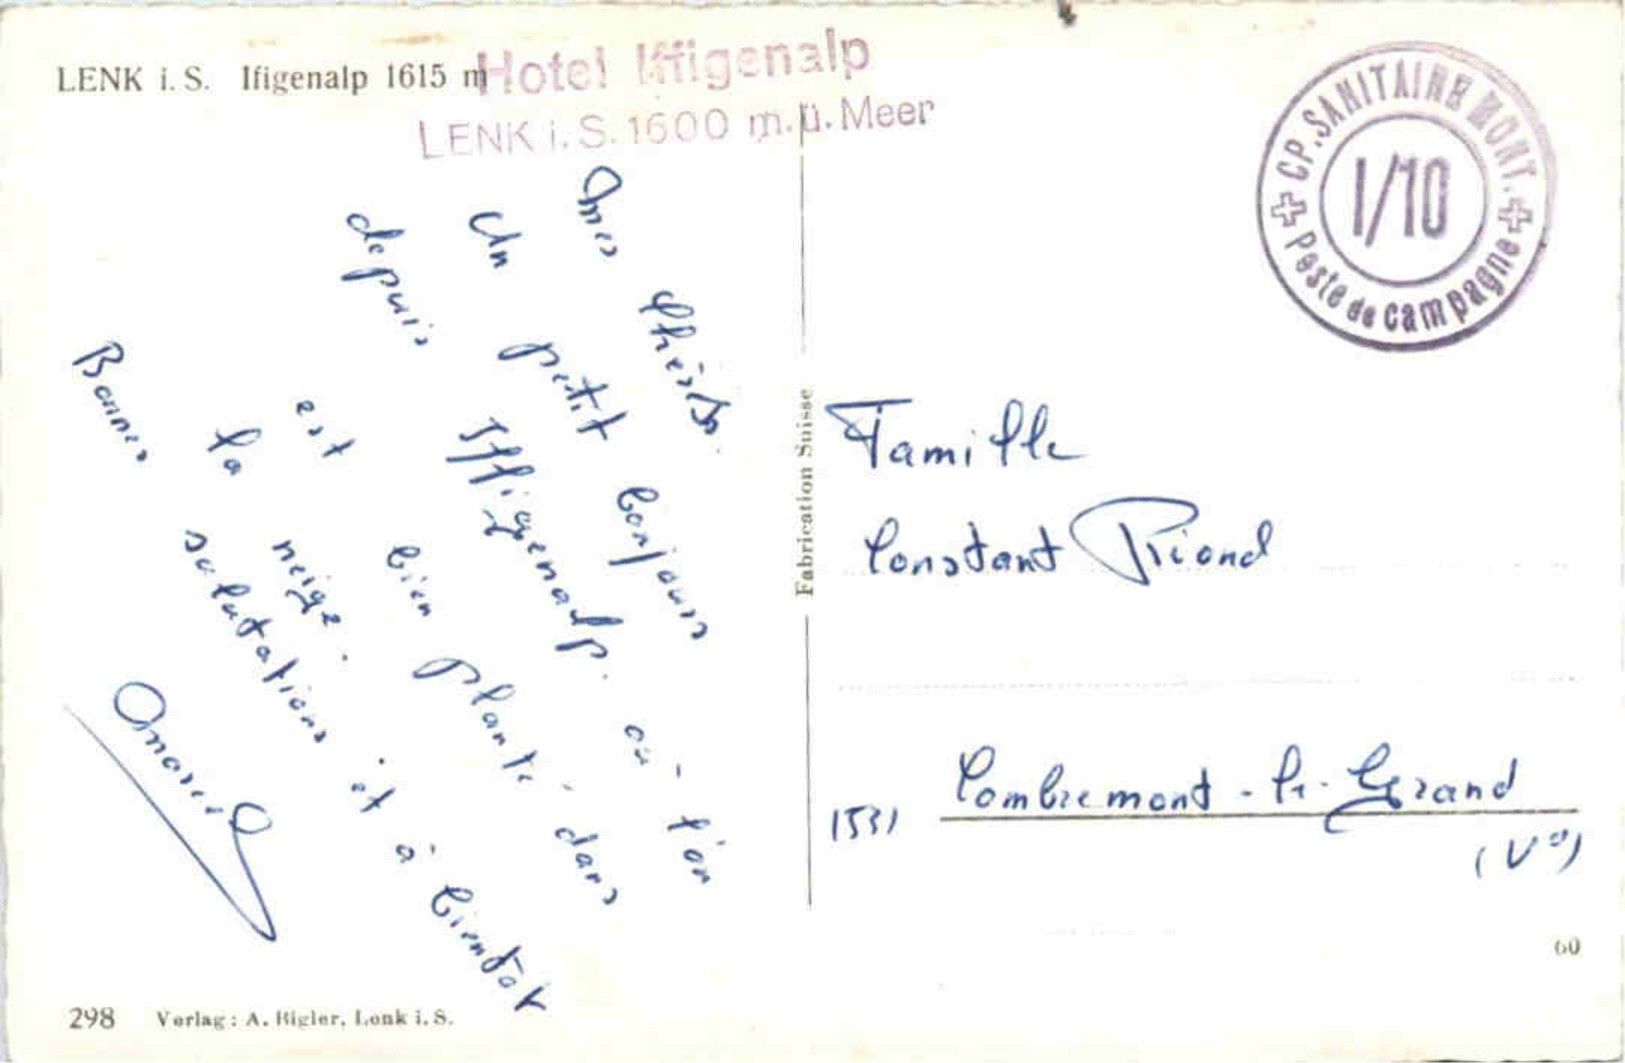 LENK i. S. Ifigenalp 1615 m
Hotel Iffigenalp
LENK i. S. 1600 m. ü. Meer
CP. SANITAIRE MONT.
I/10
Poste de campagne
Mes chères.
Un petit bonjour
depuis Iffigenalp. où l'on
est bien planté dans
la neige.
Bonnes salutations et à bientôt
Marcel
Fabrication Suisse
Famille
Constant Riond
1531 Combremont-le-Grand
(Vd)
60
298 Verlag: A. Rigler, Lenk i. S.